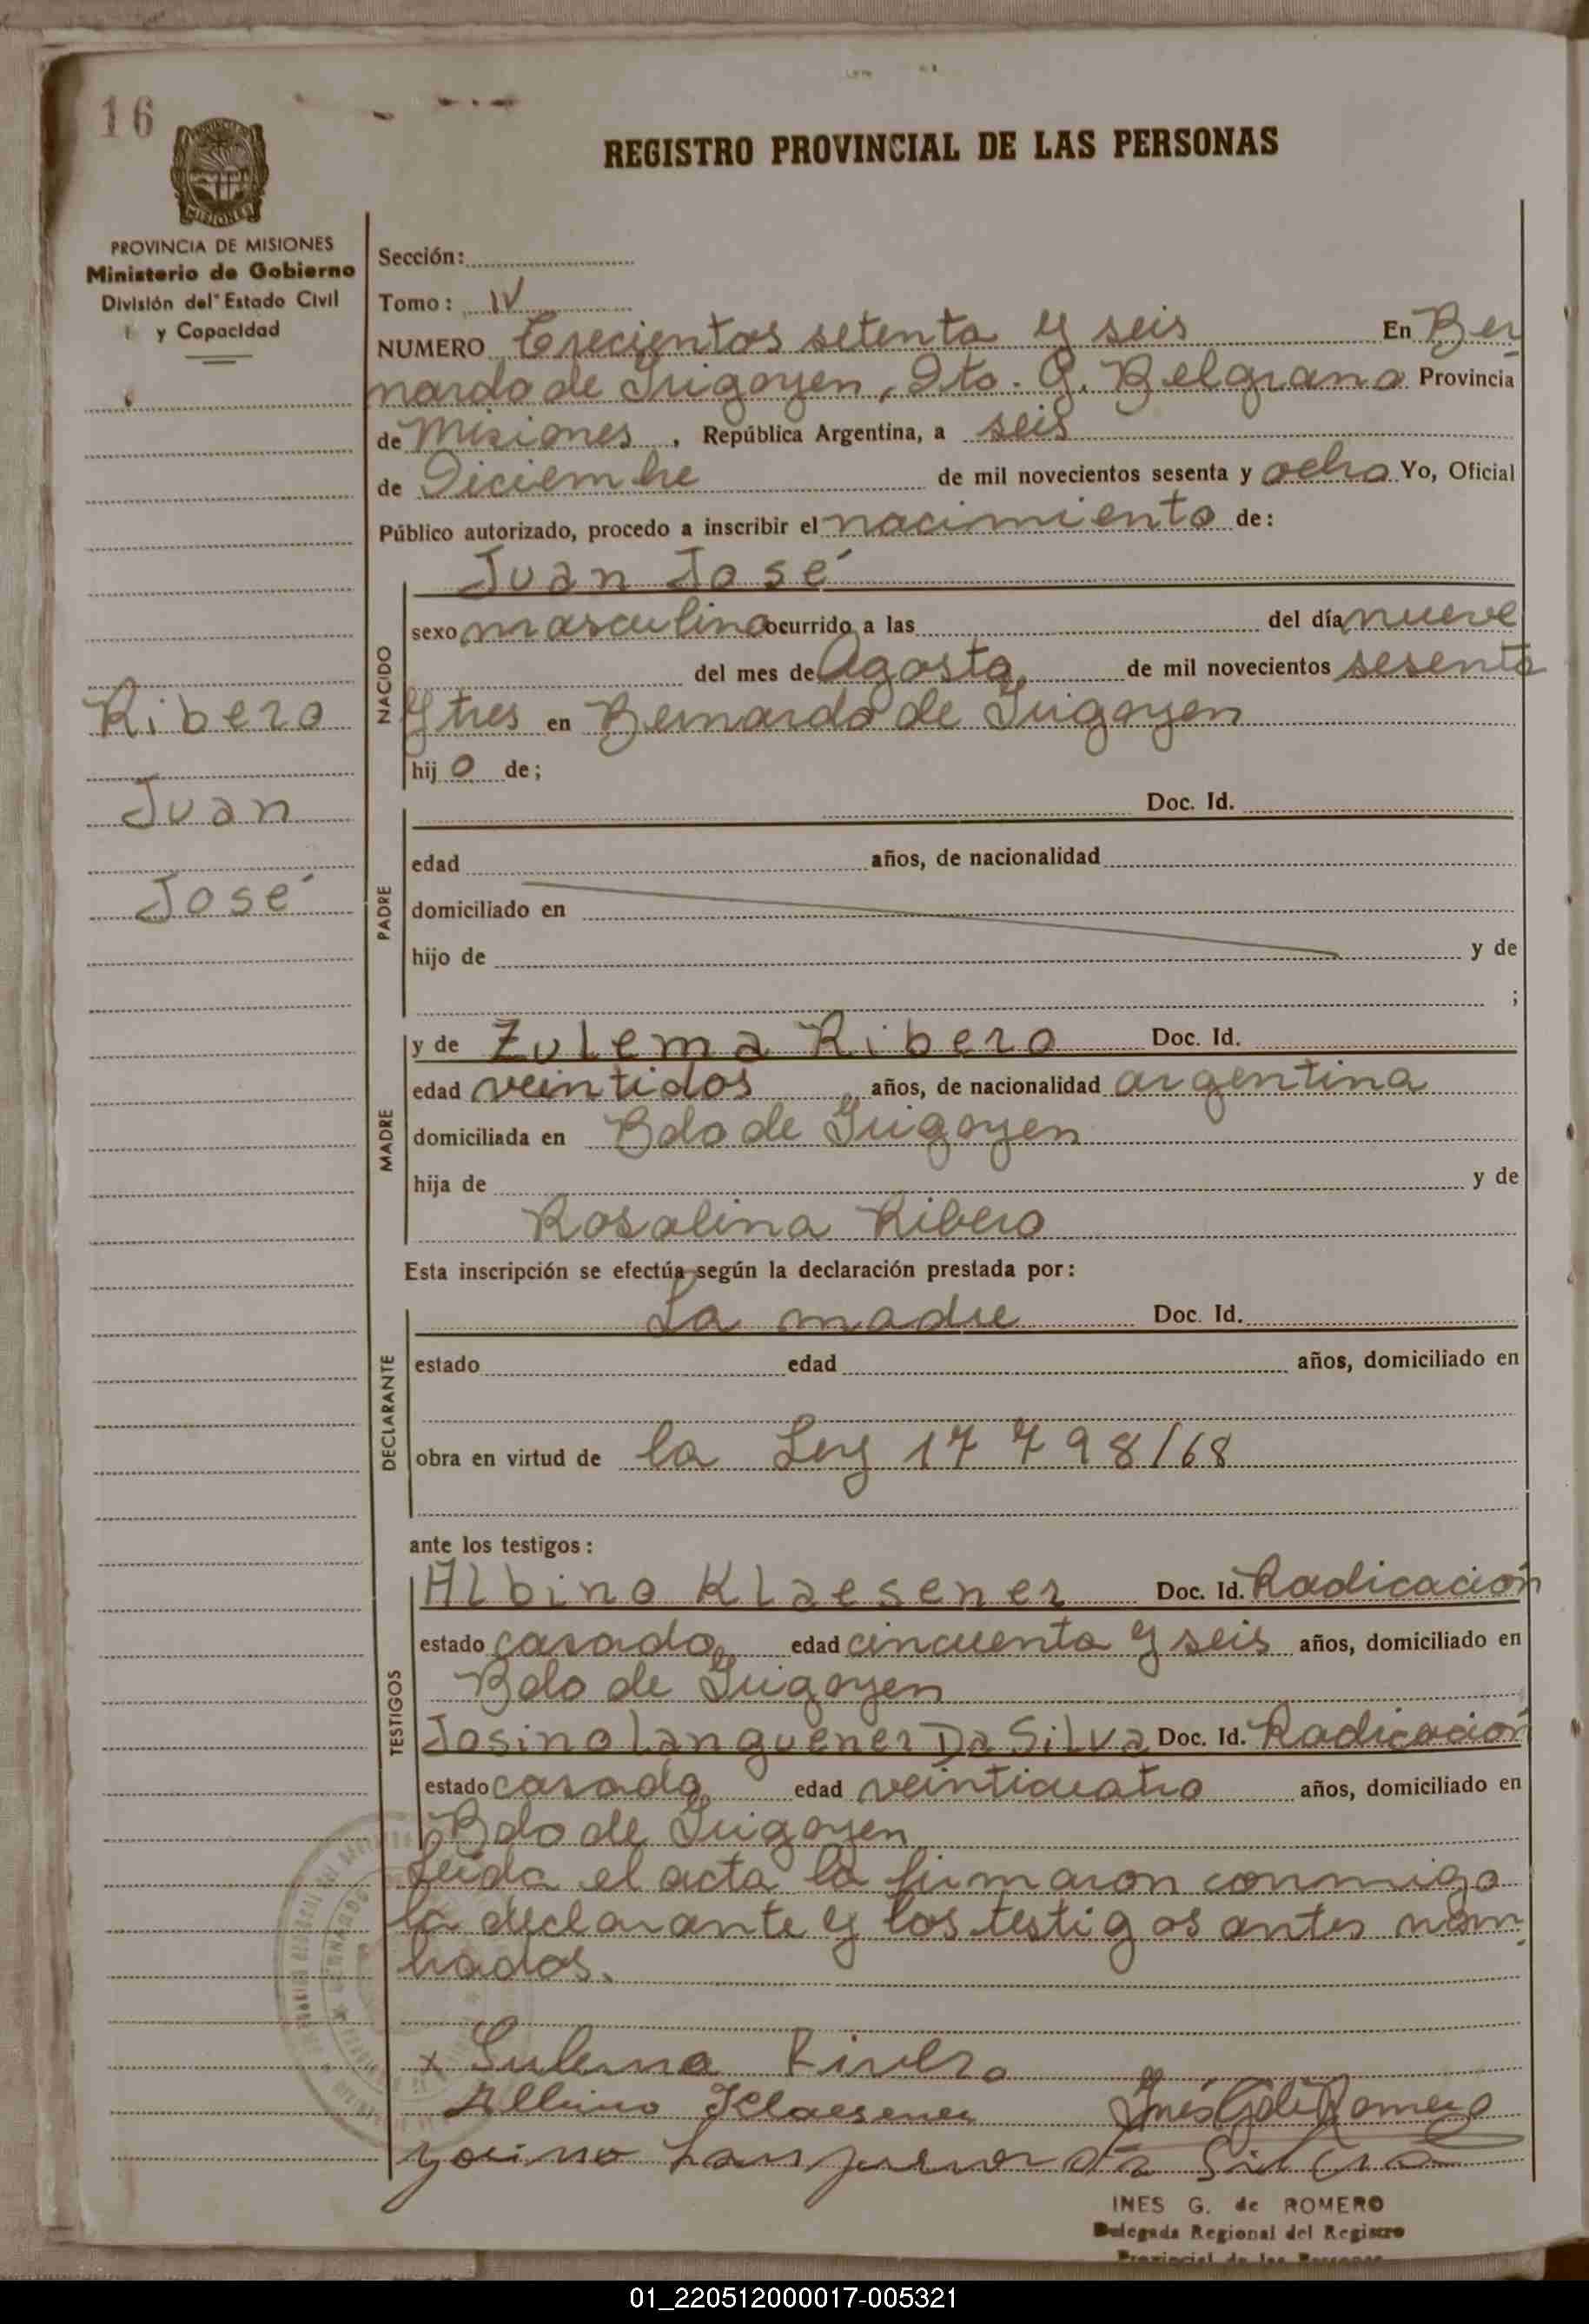 16
REGISTRO PROVINCIAL DE LAS PERSONAS
PROVINCIA DE MISIONES
Ministerio de Gobierno
División del Estado Civil
y Capacidad
Sección:
Tomo: IV
NUMERO Trecientos setenta y seis En Ber
nardo de Irigoyen, Dto. G. Belgrano Provincia
de Misiones, República Argentina, a seis
de Diciembre de mil novecientos sesenta y ocho Yo, Oficial
Público autorizado, procedo a inscribir el nacimiento de:
Ribero
Juan
José
NACIDO
Juan José
sexo masculino ocurrido a las del día nueve
del mes de Agosto, de mil novecientos sesenta
y tres en Bernardo de Irigoyen
hij o de;
PADRE
Doc. Id.
edad años, de nacionalidad
domiciliado en
hijo de y de
;
MADRE
y de Zulema Ribero Doc. Id.
edad veintidos años, de nacionalidad argentina
domiciliada en Bdo de Irigoyen
hija de y de
Rosalina Ribero
Esta inscripción se efectúa según la declaración prestada por:
DECLARANTE
La madre Doc. Id.
estado edad años, domiciliado en
obra en virtud de la Ley 17798/68
ante los testigos:
TESTIGOS
Albino Klaesener Doc. Id. Radicación
estado casado, edad cincuenta y seis años, domiciliado en
Bdo de Irigoyen
Josino Languener Da Silva Doc. Id. Radicación
estado casado, edad veinticuatro años, domiciliado en
Bdo de Irigoyen
Leída el acta la firmaron conmigo
la declarante y los testigos antes nom
brados.
x Sulema Rivero
Albino Klaesener Inés G de Romero
da Silva
INES G. de ROMERO
Delegada Regional del Registro
Provincial de las Personas
01_220512000017-005321